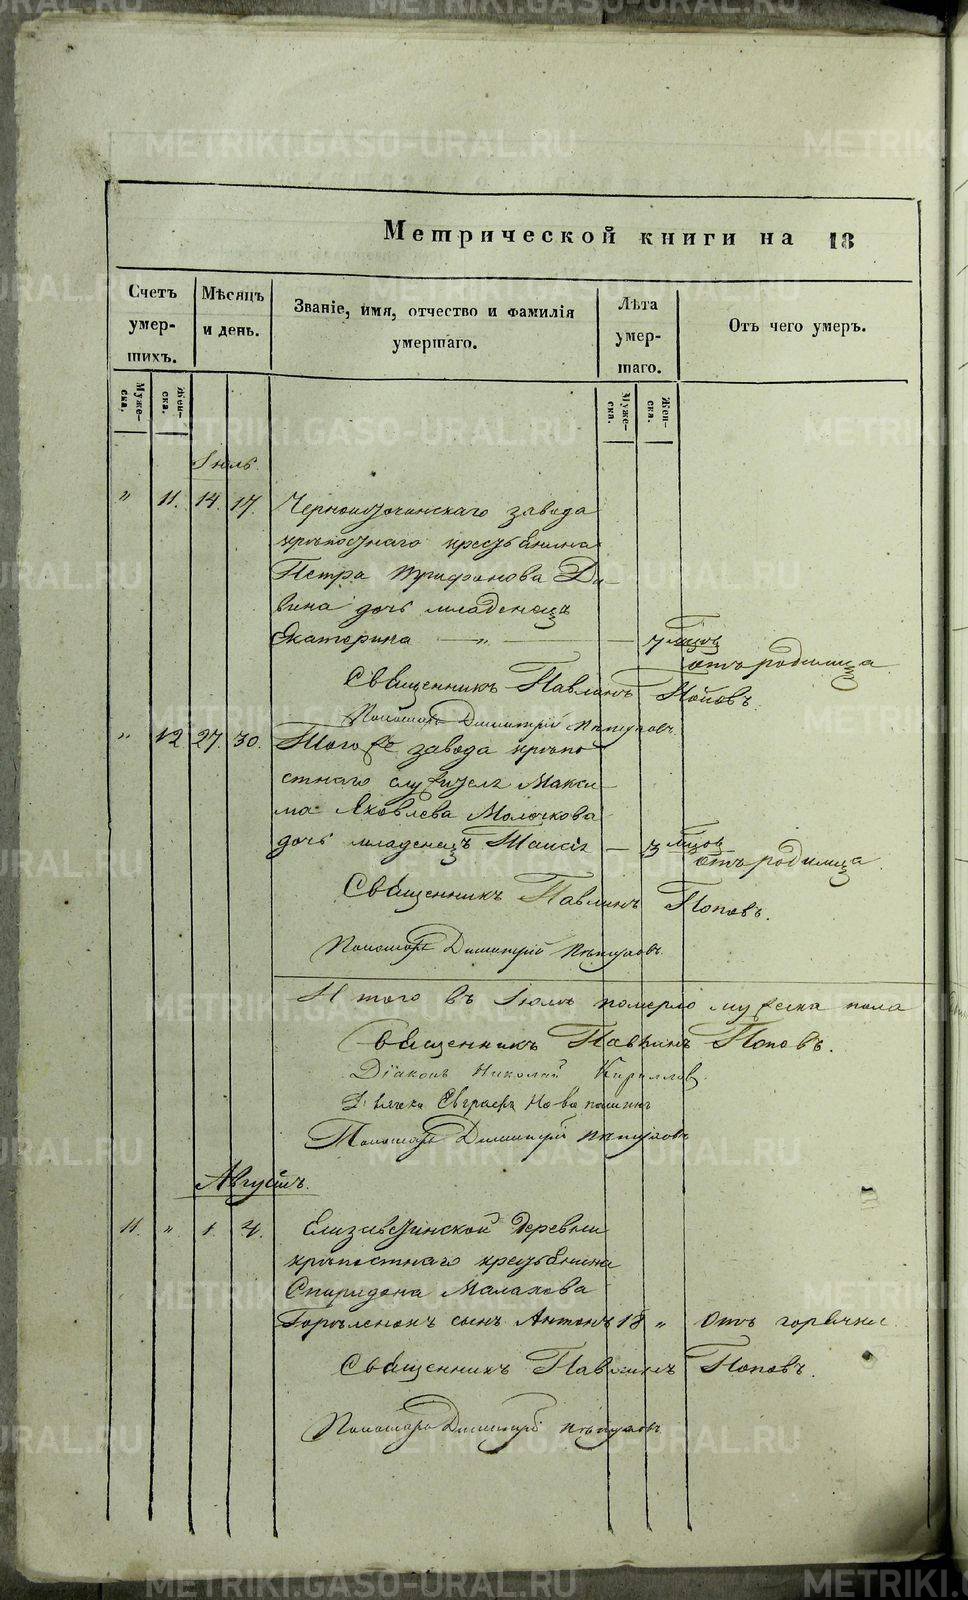 Метрической книги на 18
Счетъ умер-шихъ.
Мѣсяцъ и день.
Званіе, имя, отчество и фамилія умершаго.
Лѣта умер-шаго.
Отъ чего умеръ.
Муже-ска.
Жен-ска.
Муже-ска.
Жен-ска.
Іюль
" 11. 14. 17. Черноисточинскаго завода
крѣпостнаго крестьянина
Петра Трифонова Де-
вина дочь младенецъ
Екатерина — " — 7 мѣсцов отъ родимца
Священникъ Павлинъ Поповъ.
Пономарь Димитрій
" 12 27. 30. Того же завода крѣпо-
стнаго служителя Макси-
ма Яковлева Молочкова
дочь младенецъ Таисія — 3 мѣсцов отъ родимца
Священникъ Павлинъ Поповъ.
Пономарь Димитрій
Итого въ Іюлѣ померло мужеска пола
Священникъ Павлинъ Поповъ.
Діаконъ Николай Кирилловъ
Дьячекъ Евграфъ
Пономарь Димитрій
Августъ.
11. " 1. 4. Елизаветинской деревни
крѣпостнаго крестьянина
Спиридона Малахова
сынъ Антонъ 18 " Отъ горячки
Священникъ Павлинъ Поповъ.
Пономарь Димитрій
METRIKI.GASO-URAL.RU